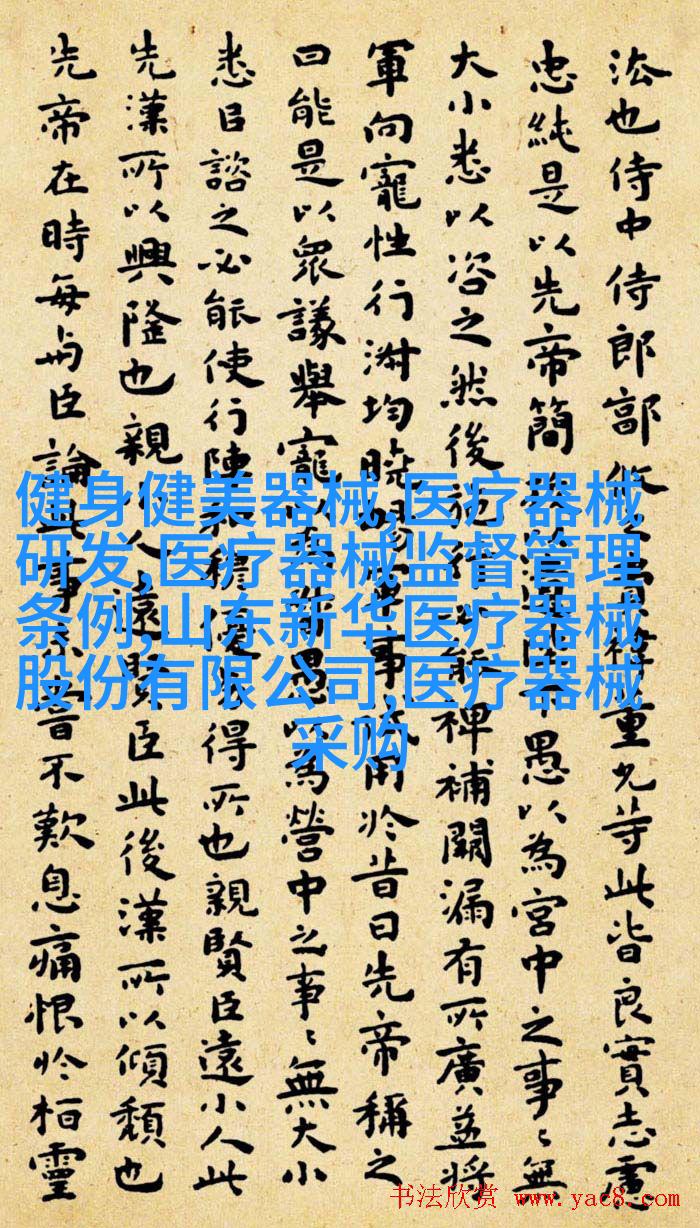 法也侍中侍郎郭攸之費禕董允等此皆良實志慮
忠純是以先帝簡拔以遺陛下愚以為宮中之事〻無
大小悉以咨之然後施行必能裨補闕漏有所廣益將
軍向寵性行淑均曉暢軍事試用於昔日先帝稱之
曰能是以眾議舉寵以為督愚以為營中之事〻無大小
悉以諮之必能使行陳和穆優劣得所也親賢臣遠小人此
先漢所以興隆也親小人遠賢臣此後漢所以傾頹也
先帝在時每與臣論此事未嘗不歎息痛恨於桓靈
健身健美器械,医疗器械
研发,医疗器械监督管理
条例,山东新华医疗器械
股份有限公司,医疗器械
采购
书法欣赏 www.yac8.com